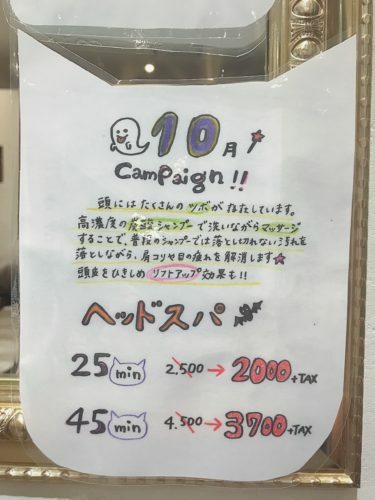 10月
Campaign!!
頭にはたくさんのツボが存在しています。
高濃度の炭酸シャンプーで洗いながらマッサージ
することで、普段のシャンプーでは落としきれない汚れを
落としながら、肩コリや目の疲れを解消します★
頭皮をひきしめリフトアップ効果も!!
ヘッドスパ
25min 2,500→2000+TAX
45min 4,500→3700+TAX